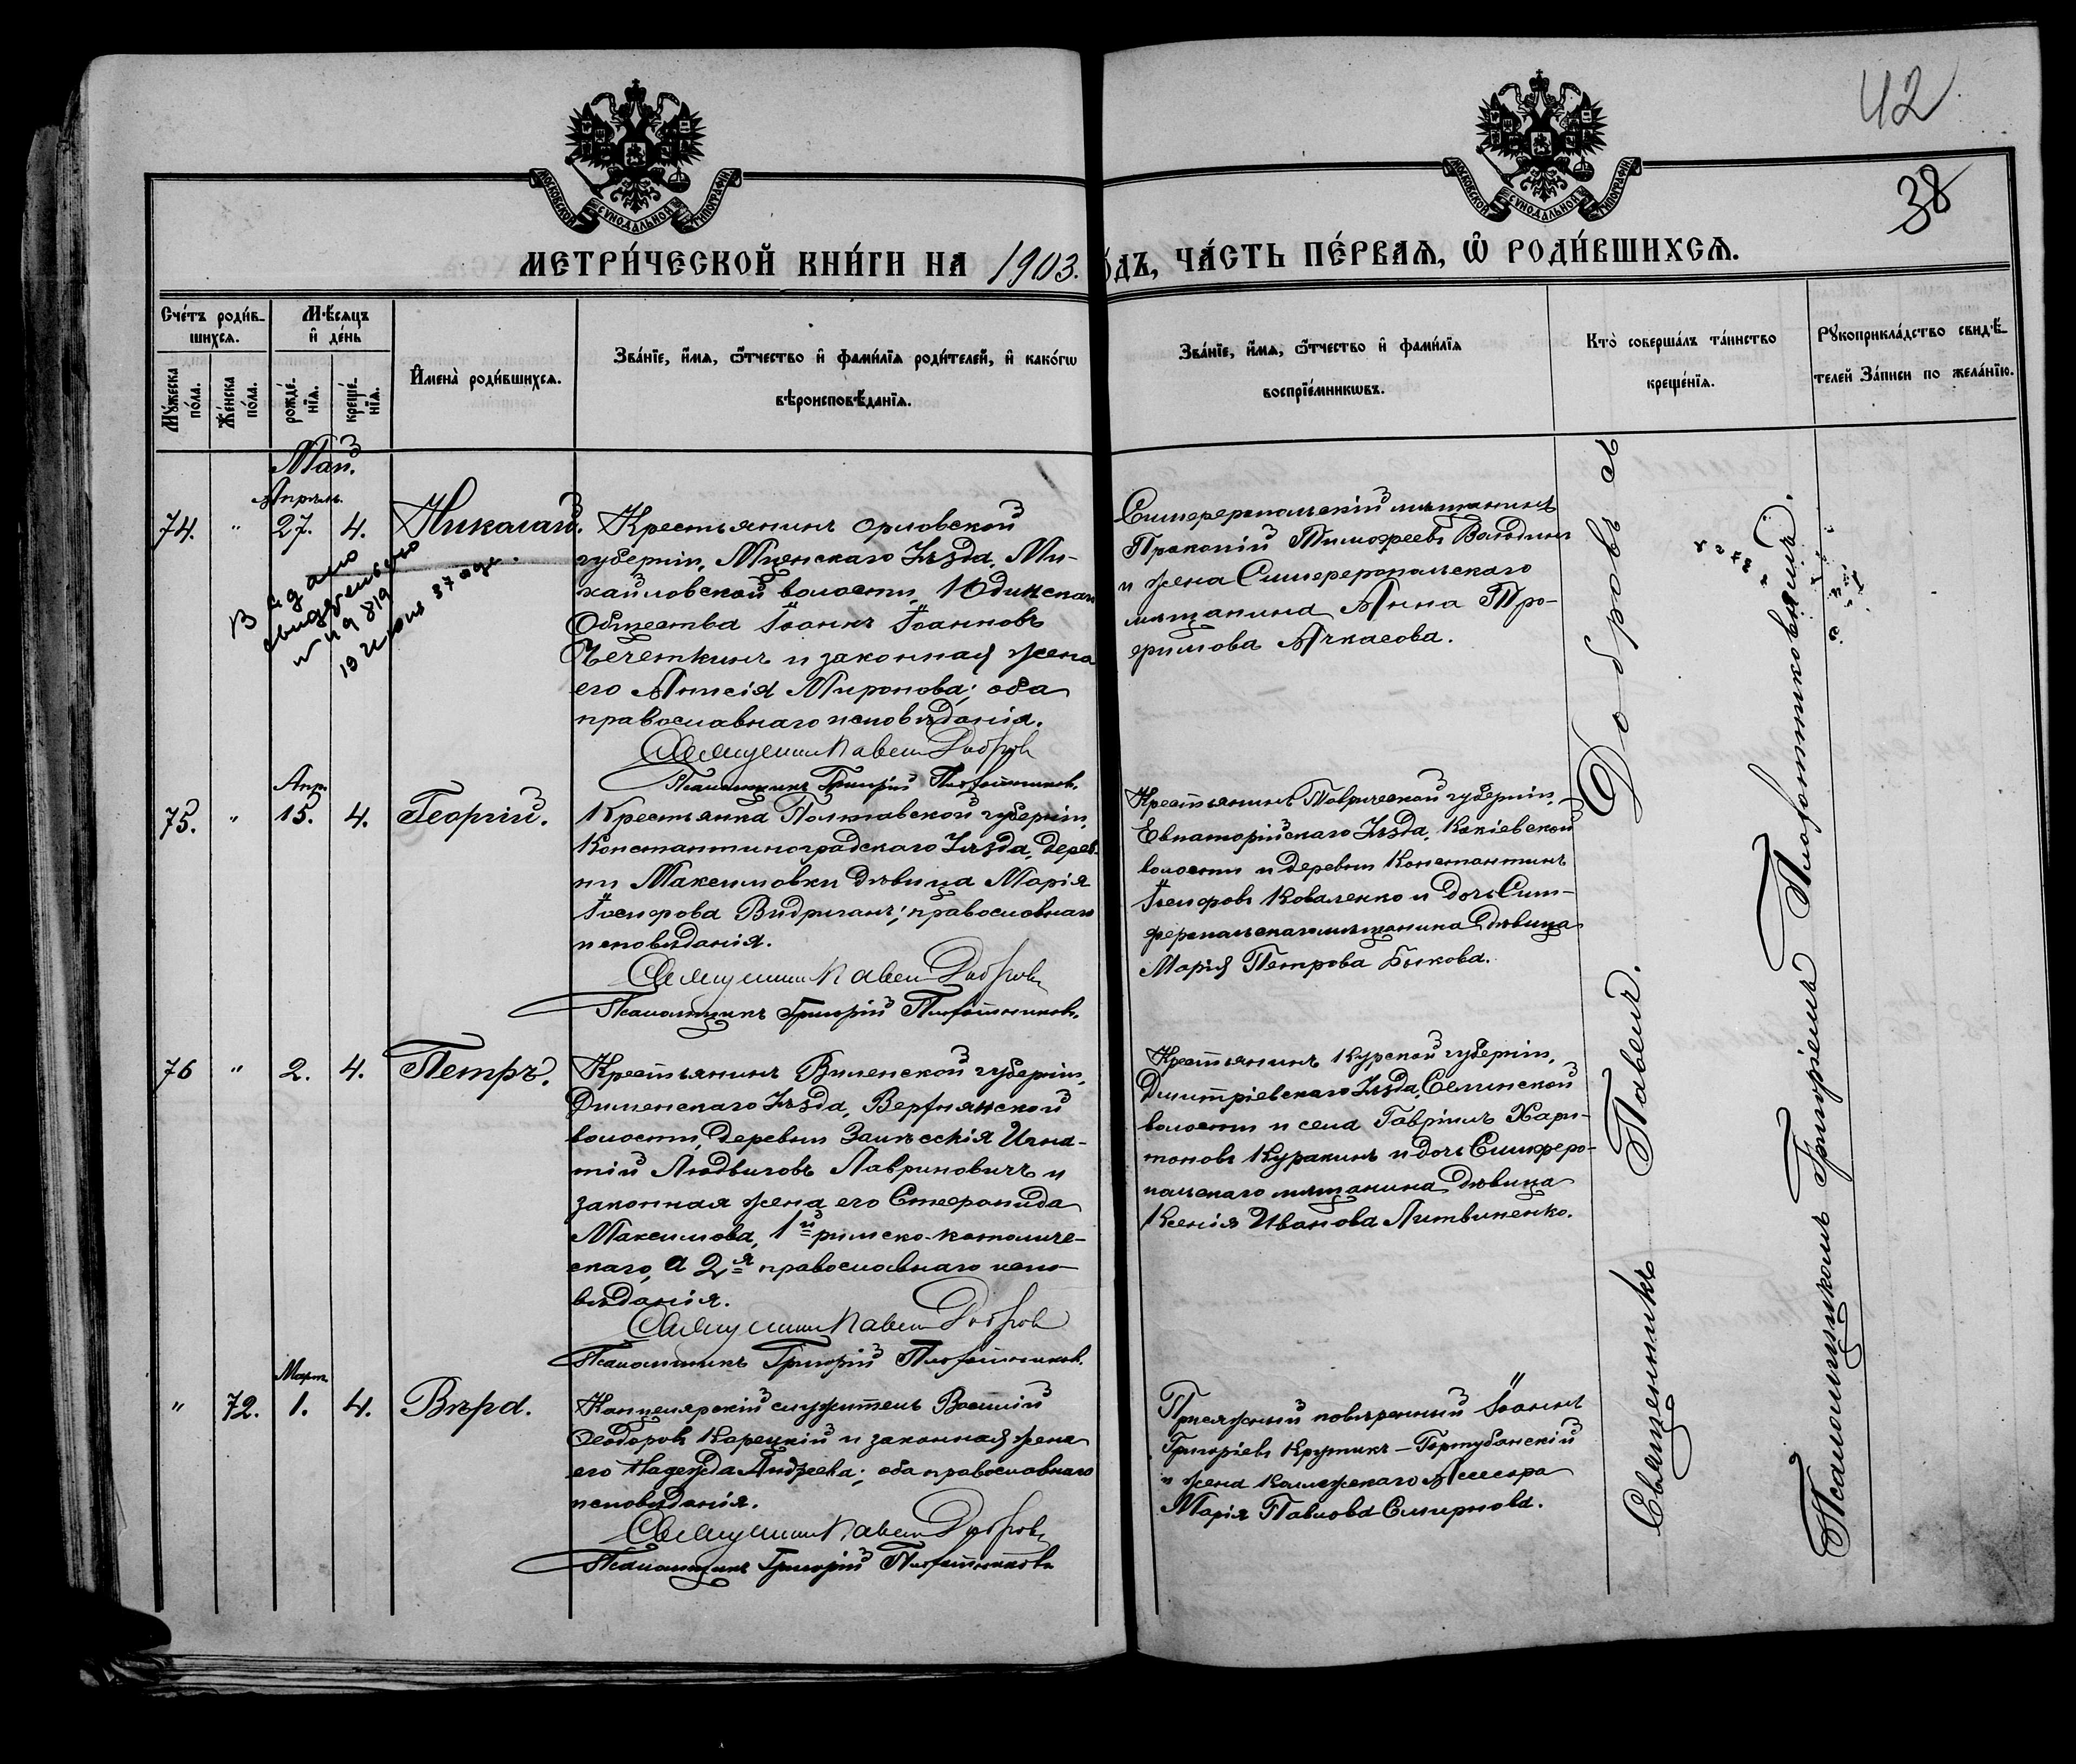 42
38
МОСКОВСКОЙ СѴНОДАЛЬНОЙ ТИПОГРАФІИ
МОСКОВСКОЙ СѴНОДАЛЬНОЙ ТИПОГРАФІИ
МЕТРИ́ЧЕСКОЙ КНИ́ГИ НА 1903. О́ДЪ, ЧА́СТЬ ПЕ́РВАѦ, Ѿ РОДИ́ВШИХСѦ.
Сче́тъ роди́в-
шихсѧ.
Мꙋ́жеска по́ла.
Же́нска по́ла.
Мѣ́сѧцъ и҆ де́нь
рожде́нїѧ.
креще́нїѧ.
И҆мена̀ роди́вшихсѧ.
Зва́нїе, и҆́мѧ, ѻ҆́тчество и҆ фами́лїѧ роди́телей, и҆ како́гѡ
вѣроисповѣ́данїѧ.
Зва́нїе, и҆́мѧ, ѻ҆́тчество и҆ фами́лїѧ
воспрїе́мникѡвъ.
Кто̀ соверша́лъ та́инство
креще́нїѧ.
Рꙋкоприкла́дство свидѣ́-
телей за́писи по жела́нїю.
Май.
Апрѣль.
74. " 27. 4. Николай.
Выдано
свидетельство
№ 49819
19 июня 37 года.
Крестьянинъ Орловской
губерніи, Мценскаго Уѣзда, Ми-
хайловской волости, Юдинскаго
Общества Іоаннъ Іоанновъ
Чечеткинъ и законная жена
его Анисія Миронова; оба
православнаго исповѣданія.
Священникъ Павелъ Добровъ
Псаломщикъ Григорій Плотниковъ.
Симферопольскій мѣщанинъ
Прокопій Тимофеевъ Валюдинъ
и жена Симферопольскаго
мѣщанина Анна Тро-
фимова Ачкасова.
Апр.
75. " 15. 4. Георгій.
Крестьянка Полтавской губерніи,
Константиноградскаго Уѣзда, дерев-
ни Максимовки дѣвица Марія
Іосифова Видриганъ; православнаго
исповѣданія.
Священникъ Павелъ Добровъ
Псаломщикъ Григорій Плотниковъ.
Крестьянинъ Таврической губерніи,
Евпаторійскаго Уѣзда, Кокіевской
волости и деревни Константинъ
Іосифовъ Коваленко и дочь Сим-
феропольскаго мѣщанина дѣвица
Марія Петрова Быкова.
76 " 2. 4. Петръ.
Крестьянинъ Виленской губерніи,
Дисненскаго Уѣзда, Верхнянской
волости, деревни Залѣсскія Игна-
тій Людвиговъ Лавриновичъ и
законная жена его Стефанида
Максимова, 1й римско-католиче-
скаго, а 2я православнаго испо-
вѣданія.
Священникъ Павелъ Добровъ
Псаломщикъ Григорій Плотниковъ.
Крестьянинъ Курской губерніи,
Дмитріевскаго Уѣзда, Селинской
волости и села Гавріилъ Хари-
тоновъ Куракинъ и дочь Симферо-
польскаго мѣщанина дѣвица
Ксенія Иванова Литвиненко.
Март.
" 72. 1. 4. Вѣра.
Канцелярскій служитель Василій
Ѳеодоровъ Карецкій и законная жена
его Надежда Андреева; оба православнаго
исповѣданія.
Священникъ Павелъ Добровъ
Псаломщикъ Григорій Плотниковъ
Присяжный повѣренный Іоаннъ
Григоріевъ Крутикъ-
и жена Коллежскаго Ассесора
Марія Павлова Смирнова.
Священникъ Павелъ. Добровъ съ
Псаломщикомъ Григоріемъ Плотниковымъ.